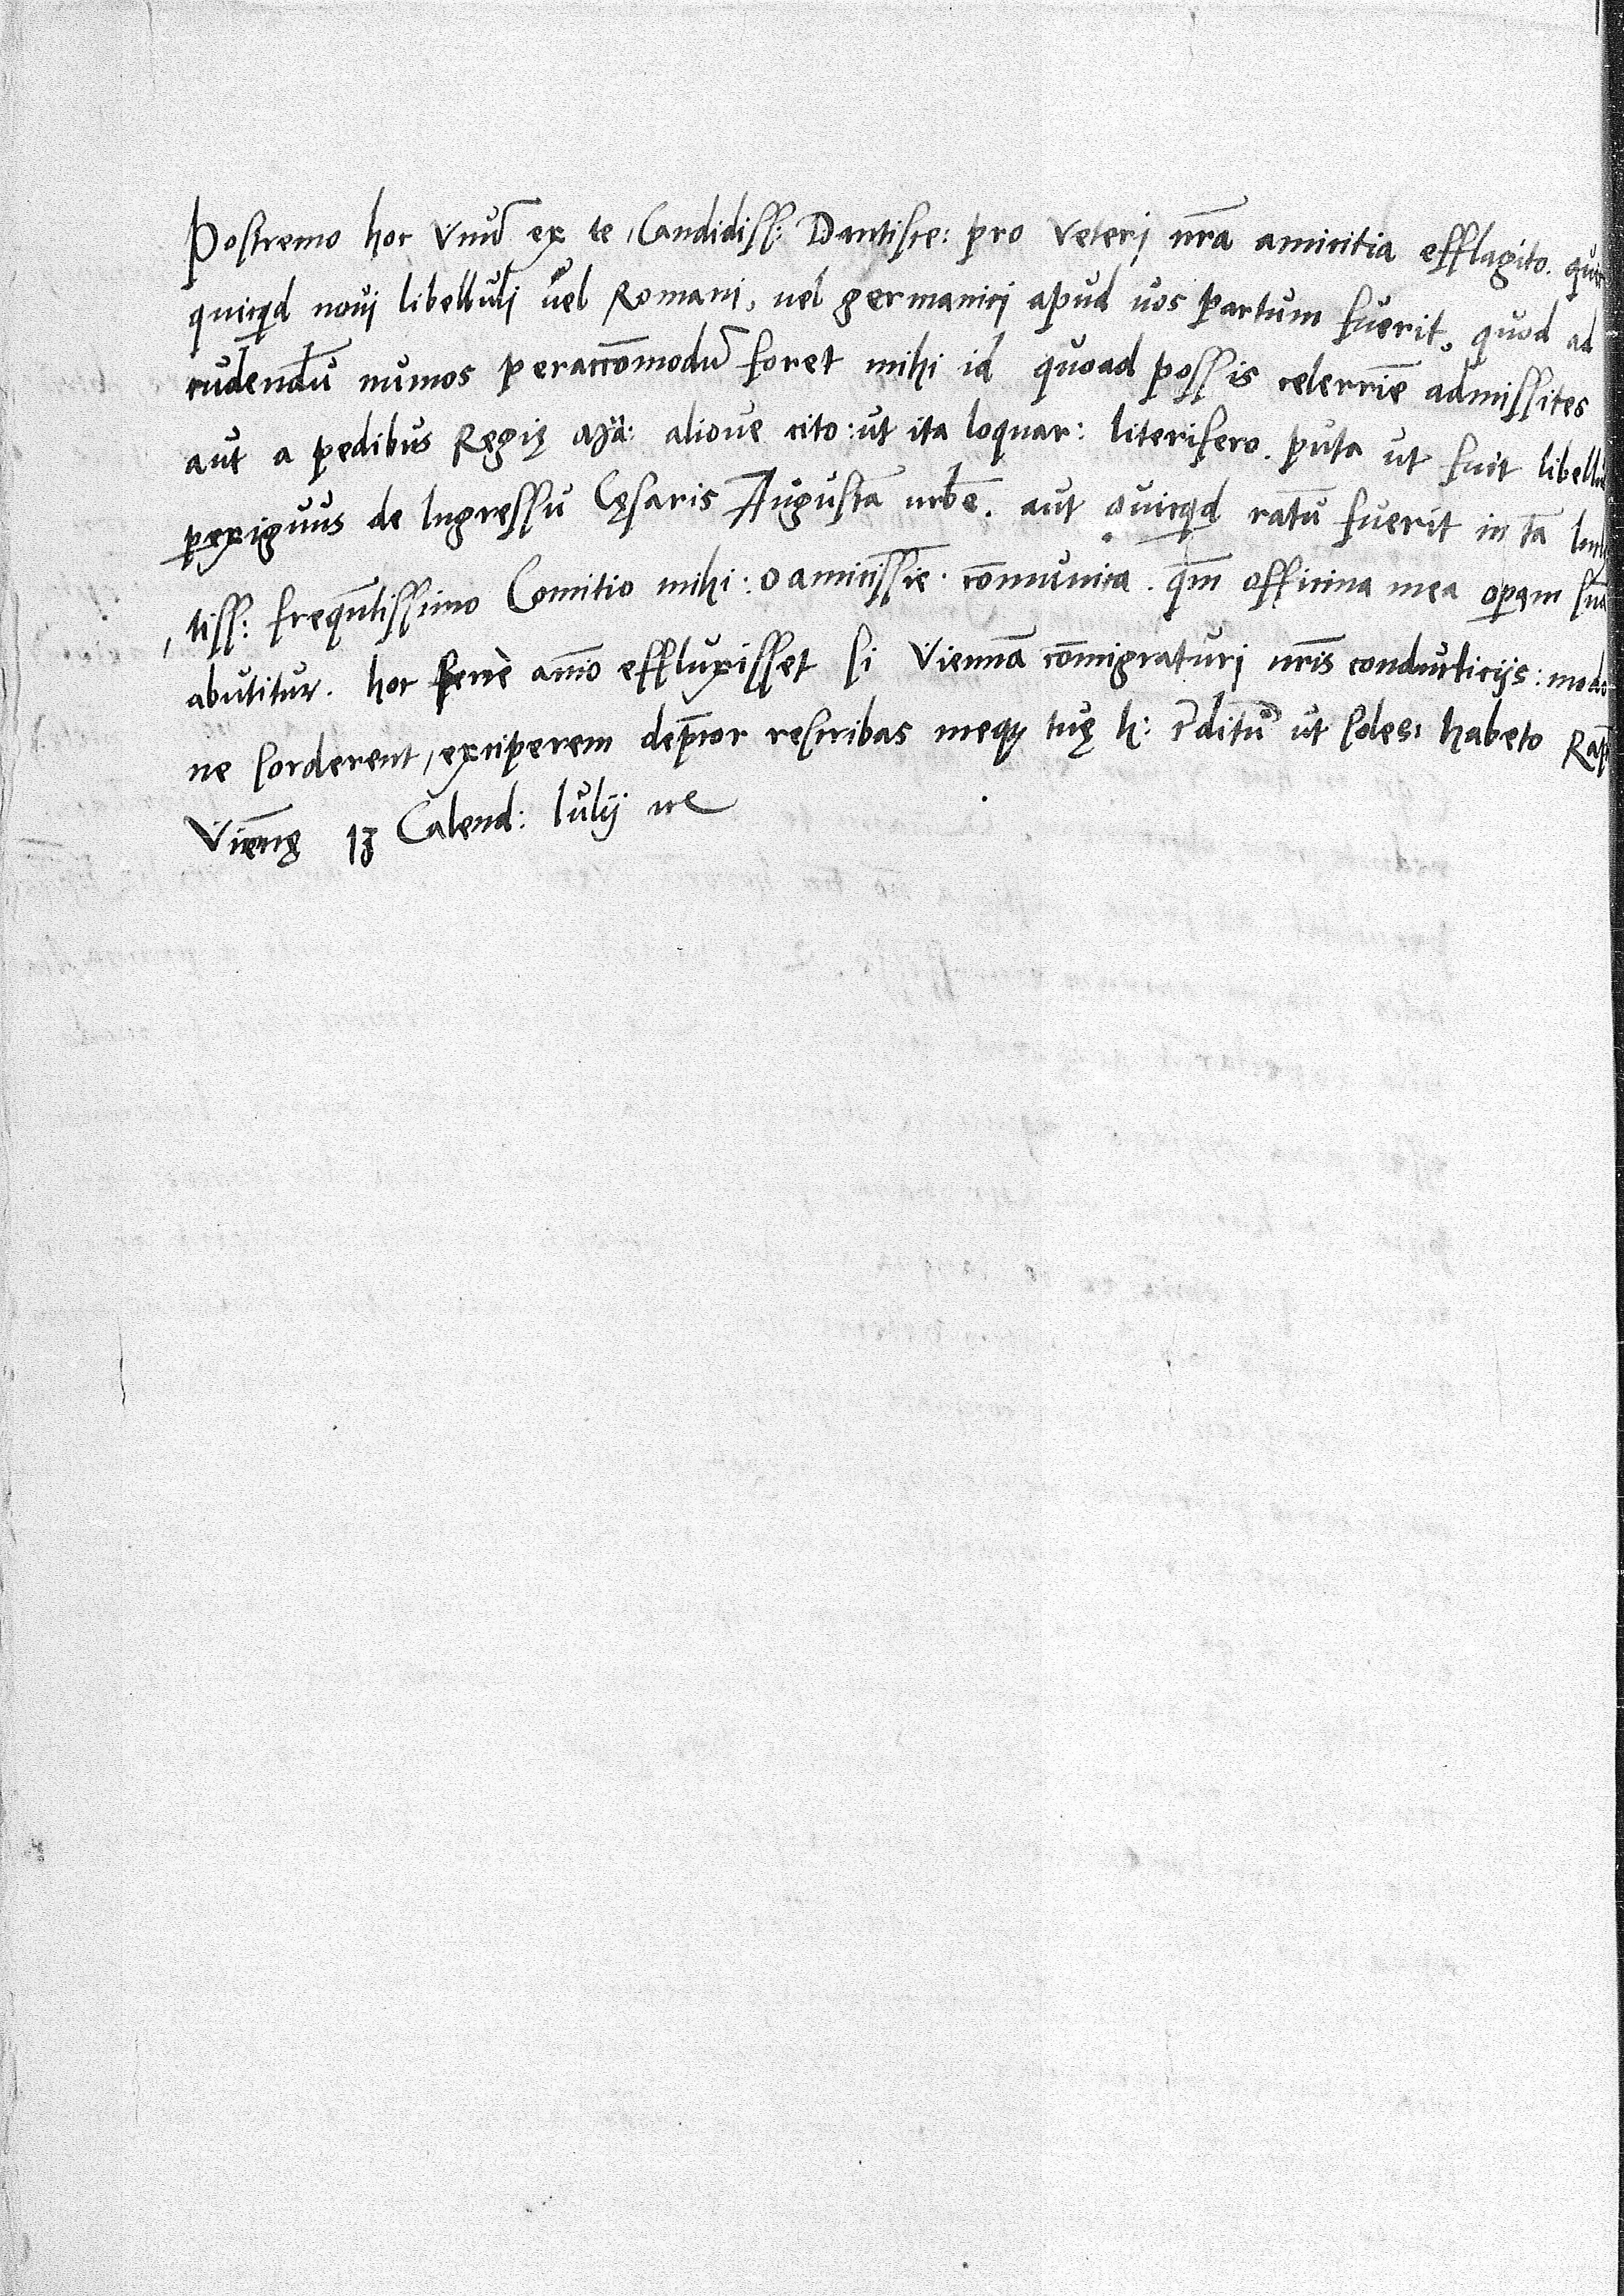 Postremo hoc Vnũ ex te, Candidiss: Dantisce: pro Veterj nrã amicitia efflagito.
quicqd novj libellulj vel Romani, vel germanicj apud uos partum fuerit, quod ad
cudendũ numos peraccõmodũ foret mihi id quoad possis celerrime admissites
aut a pedibus Regię Mtã: alioue cito: ut ita loquar: literifero. puta ut fuit
perexiguus de Ingressu Cęsaris Augustã urbẽ. aut quicqd ratũ fuerit in tã
tiss: frequẽtissimo Comitio mihi: o amicissie. cõmunica. qm̃ officina mea operam
abutitur. hoc ferè animo effluxisset si Viennã cõmigraturj nris conducticijs: modo
ne sorderent, exciperem deprecor rescribas meqȝ tuę h: rditũ ut soles, habeto
Viẽnę 13 Calend: Iulij